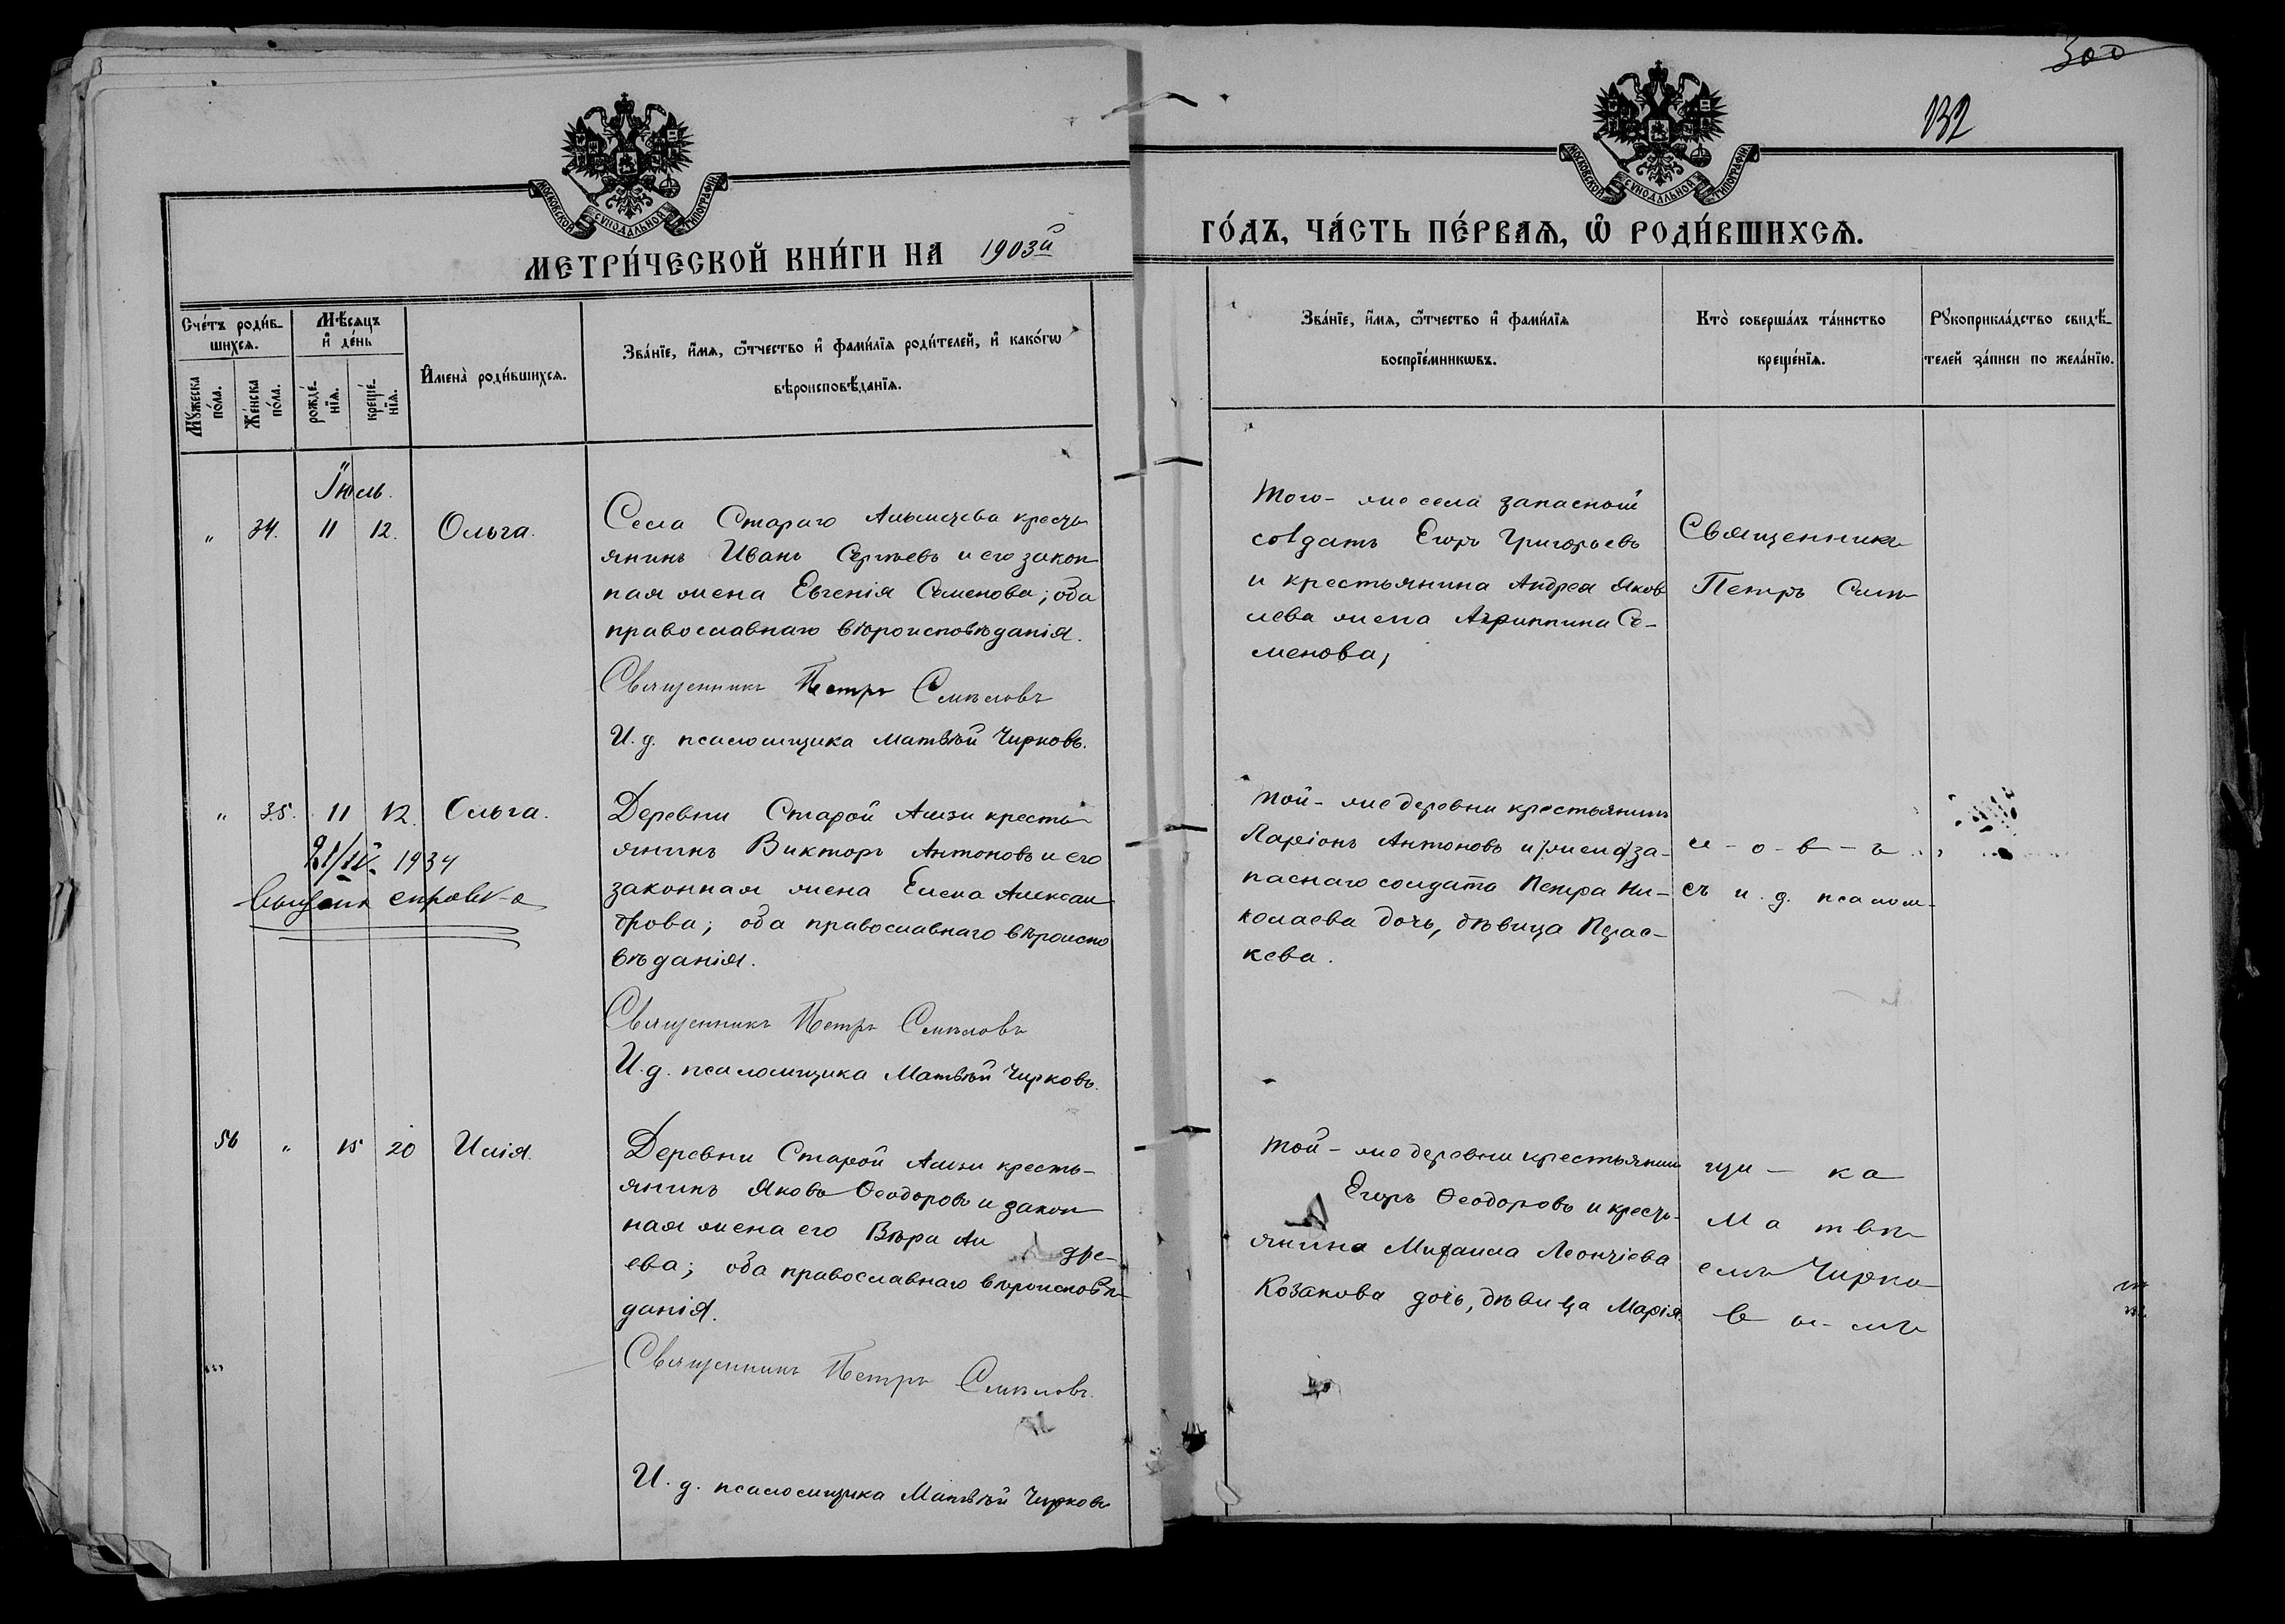 300
132
МОСКОВСКОЙ СѴНОДАЛЬНОЙ ТИПОГРАФІИ
МОСКОВСКОЙ СѴНОДАЛЬНОЙ ТИПОГРАФІИ
МЕТРИ́ЧЕСКОЙ КНИ́ГИ НА 1903й
ГО́ДЪ, ЧА́СТЬ ПЕ́РВАѦ, Ѡ РОДИ́ВШИХСѦ.
Сче́тъ роди́в-
шихсѧ.
Мꙋжеска по́ла.
Же́нска по́ла.
Мѣ́сѧцъ
и҆ де́нь
рожде́-
нїѧ.
креще́-
нїѧ.
И҆мена̀ роди́вшихсѧ.
Зва́нїе, и҆́мѧ, ѻ҆́тчество и҆ фами́лїѧ роди́телей, и҆ како́гѡ
вѣроисповѣ́данїѧ.
Зва́нїе, и҆́мѧ, ѻ҆́тчество и҆ фами́лїѧ
воспрїе́мникѡвъ.
Кто̀ соверша́лъ та́инство
креще́нїѧ.
Рꙋкоприкла́дство свидѣ́-
телей за́писи по жела́нїю.
Іюль.
" 34. 11 12. Ольга.
Села Стараго Альметева кресть
янинъ Иванъ Сергѣевъ и его закон
ная жена Евгенія Семенова; оба
православнаго вѣроисповѣданія.
Священникъ Петръ Смѣловъ
И. д. псаломщика Матвѣй Чирковъ.
Того-же села запасный
солдатъ Егоръ Григорьевъ
и крестьянина Андрея Яков
лева жена Агриппина Се-
менова;
Священникъ
Петръ Смѣ
" 35. 11 12. Ольга.
21/IV. 1934
справк-а
Деревни Старой Амзи кресть
янинъ Викторъ Антоновъ и его
законная жена Елена Алексан
дрова; оба православнаго вѣроиспо
вѣданія.
Священникъ Петръ Смѣловъ
И. д. псаломщика Матвѣй Чирковъ.
Той-же деревни крестьянинъ
Ларіонъ Антоновъ и за-
паснаго солдата Петра Ни-
колаева дочь, дѣвица Парас-
кева.
л-о-в-ъ
съ и. д. псалом-
56 " 15 20 Илія.
Деревни Старой Амзи кресть-
янинъ Яковъ Ѳеодоровъ и закон
ная жена его Вѣра Ан дре-
ева; оба православнаго вѣроисповѣ-
данія.
Священникъ Петръ Смѣловъ.
И. д. псаломщика Матвѣй Чирковъ
Той-же деревни крестьянинъ
Егоръ Ѳеодоровъ и кресть-
янина Михаила Леонтіева
Козакова дочь, дѣвица Марія.
щи-ка
Матвѣ
емъ Чирко-
вы-мъ